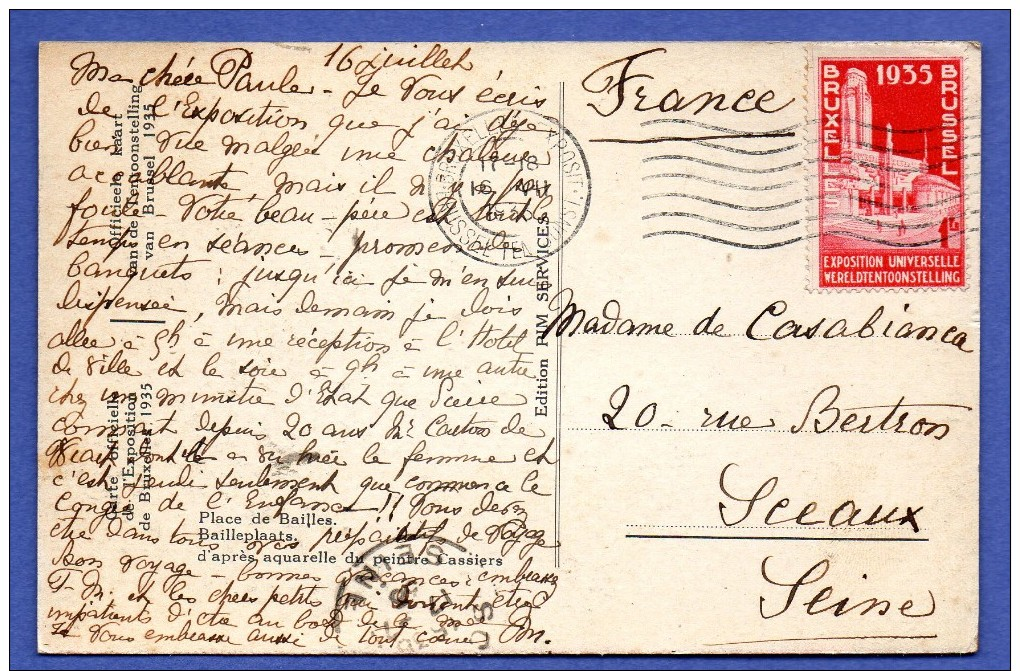 16 juillet
Ma chère Paule - Je vous écris
de l'Exposition que j'ai déjà
bien vue malgré une chaleur
accablante, mais il n'y a pas
foule - Votre beau-père est tout le
temps en séances - promenades
banquets : jusqu'ici je m'en suis
dispensée, mais demain je dois
aller à 5h à une réception à l'Hotel
de Ville et le soir à 9h à une autre
chez un ministre d'Etat que
connait depuis 20 ans Mr de
dont la femme et
c'est jeudi seulement que commence le
Congrès de l'Enfance !! Vous devez
être dans tous vos préparatifs de voyage
Bon voyage - bonnes vacances : embrassez
et les chers petits qui doivent être
impatients d'être au bord de la mer
Je vous embrasse aussi de tout coeur
Officieele kaart
van de Tentoonstelling
van Brussel 1935
Carte officielle
de l'Exposition
de Bruxelles 1935
Place de Bailles.
Bailleplaats.
d'après aquarelle du peintre Cassiers
Edition PIM SERVICES
France
1935
BRUXELLES
BRUSSEL
EXPOSITION UNIVERSELLE
WERELDTENTOONSTELLING
Madame de Casabianca
20 - rue Bertron
Sceaux
Seine